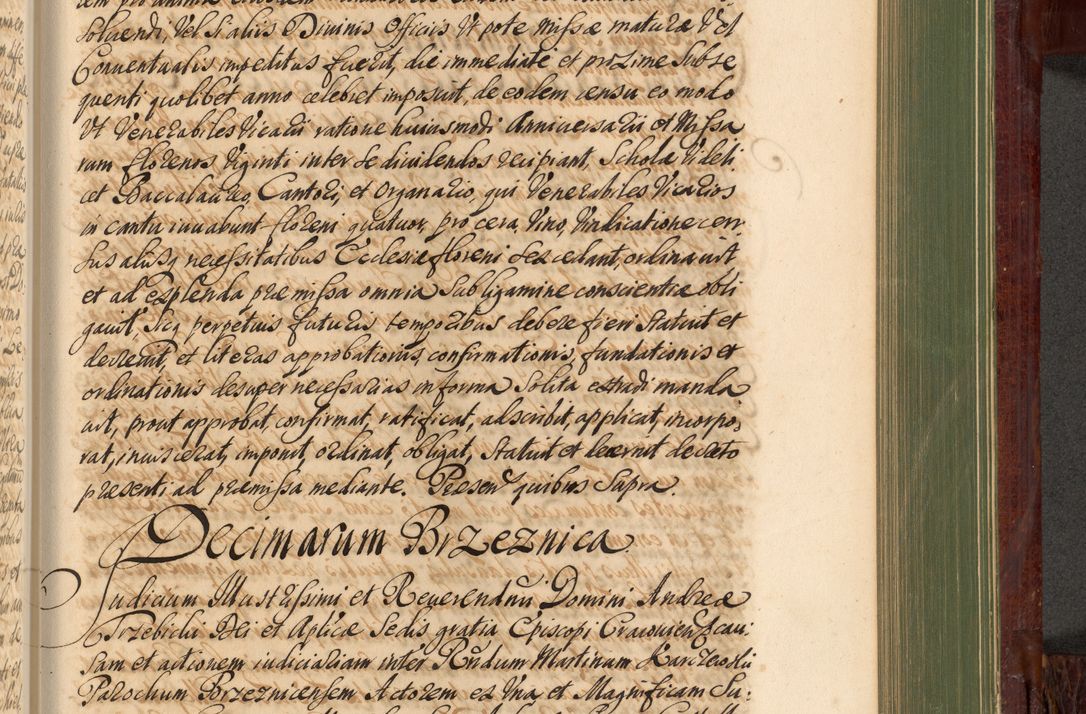 soluendi, Vel si aliis Diuinis Officiis Vt pote Missæ maturæ Vel
Conuentualis impeditus fuerit, die immediate et proxime subse
quenti quolibet anno celebret imposuit, de eodem censu eo modo
Vt Venerabiles Vicarii ratione huiusmodi Anniuersarii et Missa
rum florenos Viginti inter se diuidendos recipiant, Scholæ Videli
cet Baccalaureo, Cantori, et Organario, qui Venerabiles Vicarios
in cantu iuuabunt floreni quatuor, pro cera, Vino, Vindicatione cen
sus aliisq necessitatibus Ecclesiæ floreni sex cedant, ordinauit
et ad explenda præmissa omnia sub ligamine conscientiæ obli
gauit, sicq perpetuis futuris temporibus debere fieri statuit et
decreuit, et literas approbationis, confirmationis, fundationis et
ordinationis desuper necessarias in forma solita extradi manda
uit, prout approbat, confirmat, ratificat, adscribit, applicat, incorpo
rat, inuiscerat, imponit, ordinat, obligat, statuit et decernit decreto
præsenti ad præmissa mediante. Præsen quibus supra.
Decimarum Brzeznica
Iudicium Illustrissimi et Reuerendissimi Domini Andreæ
Trzebicki Dei et Aplicæ Sedis gratia Episcopi Cracouien, cau
sam et actionem iudiciariam inter Rndum Martinum Karczewski
Parochum Brzeznicensem Actorem ex Vna et Magnificam Su: